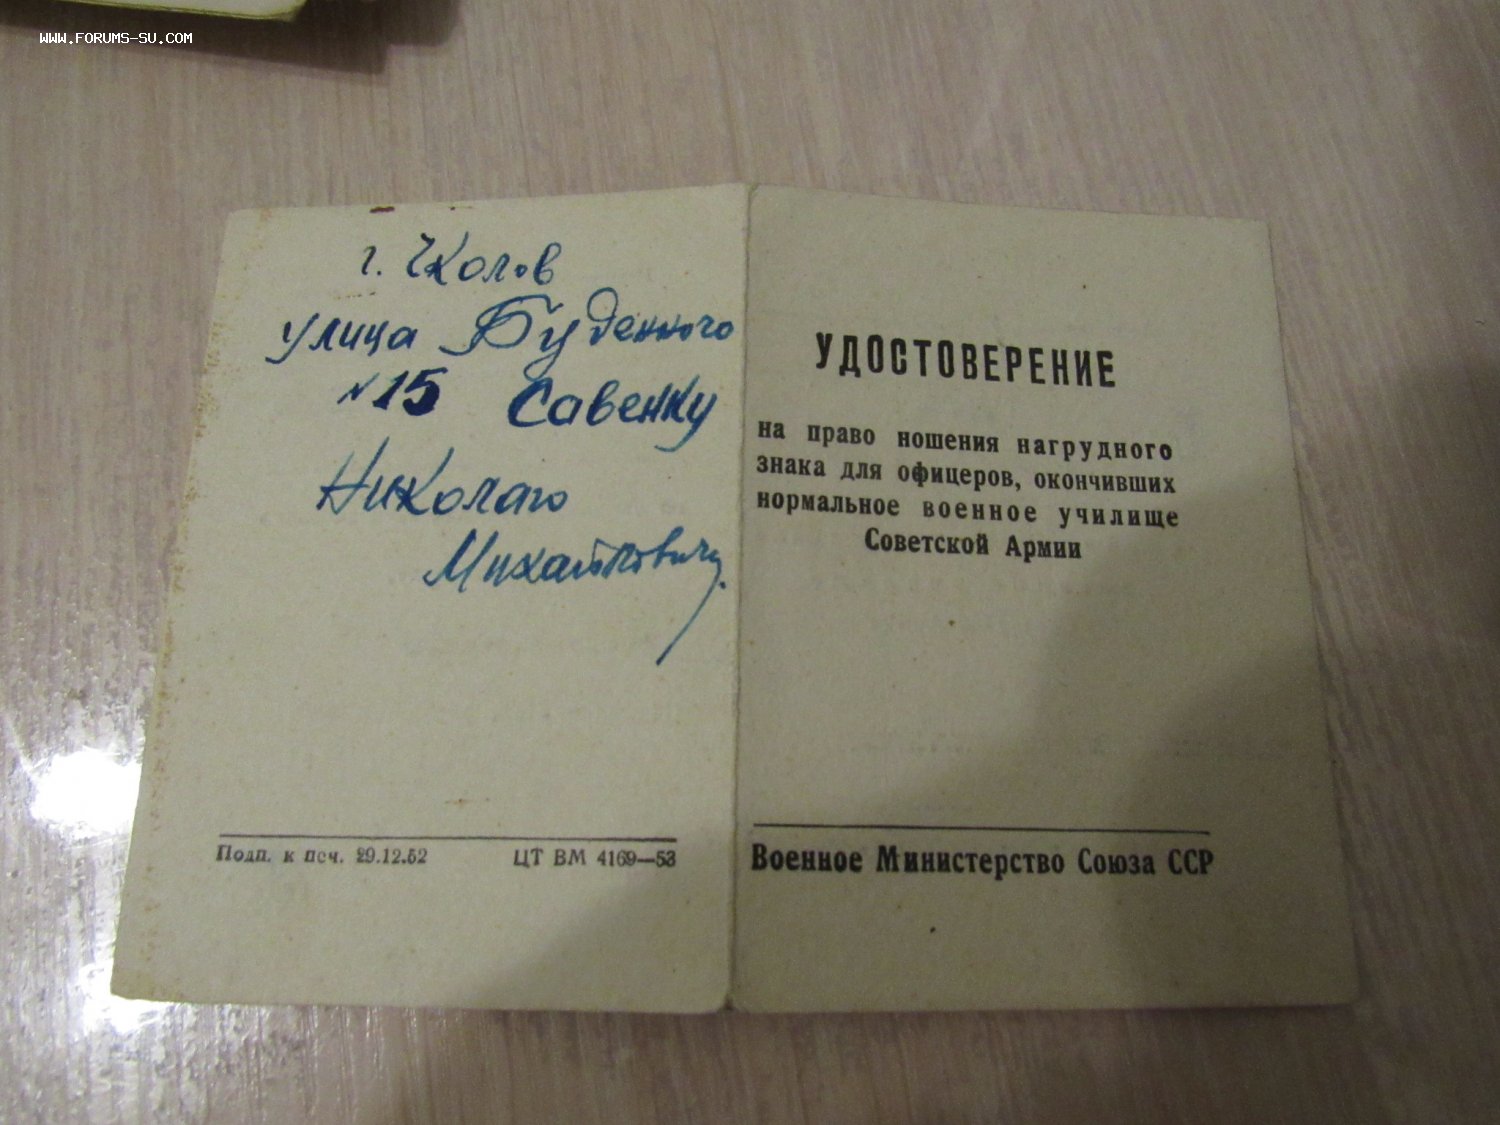 WWW.FORUMS-SU.COM
г. Чкалов
улица Буденного
№15 Савенку
Николаю
Михайловичу.
Подп. к печ. 29.12.52
ЦТ ВМ 4169—53
УДОСТОВЕРЕНИЕ
на право ношения нагрудного
знака для офицеров, окончивших
нормальное военное училище
Советской Армии
Военное Министерство Союза ССР